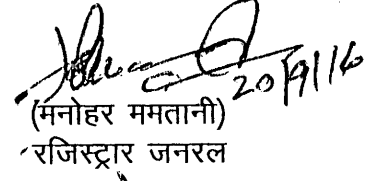 20/9/16
(मनोहर ममतानी)
रजिस्ट्रार जनरल